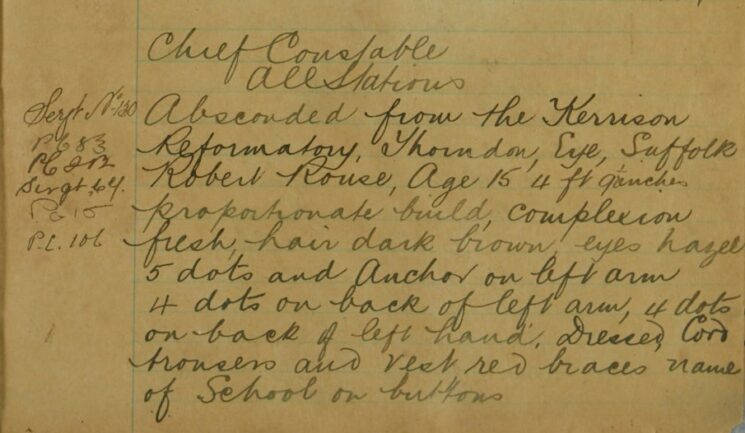 Chief Constable
All Stations
Sergt No 130 Absconded from the Kerrison
PC 83 Reformatory, Thorndon, Eye, Suffolk
PC Robert Rouse, Age 15 4 ft inches
Sergt 64. proportionate build, complexion
P.C. 106 fresh, hair dark brown, eyes hazel
5 dots and Anchor on left arm
4 dots on back of left arm, 4 dots
on back of left hand. Dressed, Cord
trousers and vest red braces name
of School on buttons